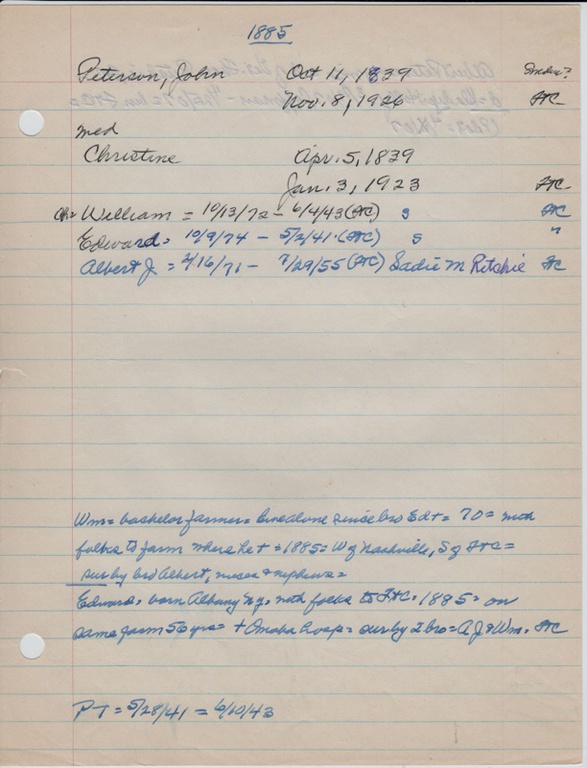 1885
Peterson, John Oct 11, 1839 Sweden?
Nov. 8, 1926 FtC
med
Christine Apr. 5, 1839
Jan. 3, 1923 FtC
Ch= William = 10/13/72 - 6/4/43 (FtC) s FtC
Edward = 10/9/74 - 5/2/41 · (FtC) s "
Albert J = 2/16/71 - 7/29/55 (FtC) Sadie M Ritchie FtC
Wm = bachelor farmer = lived alone since bro Ed + = 70 = with
folks to farm where he + = 1885 = W of Nashville, S of FtC =
sur by bro Albert, nieces & nephews =
Edward = born Albany N.Y. = with folks to FtC = 1885 = on
same farm 56 yrs = + Omaha hosp = sur by 2 bro = A J & Wm. FtC
PT = 5/28/41 = 6/10/43